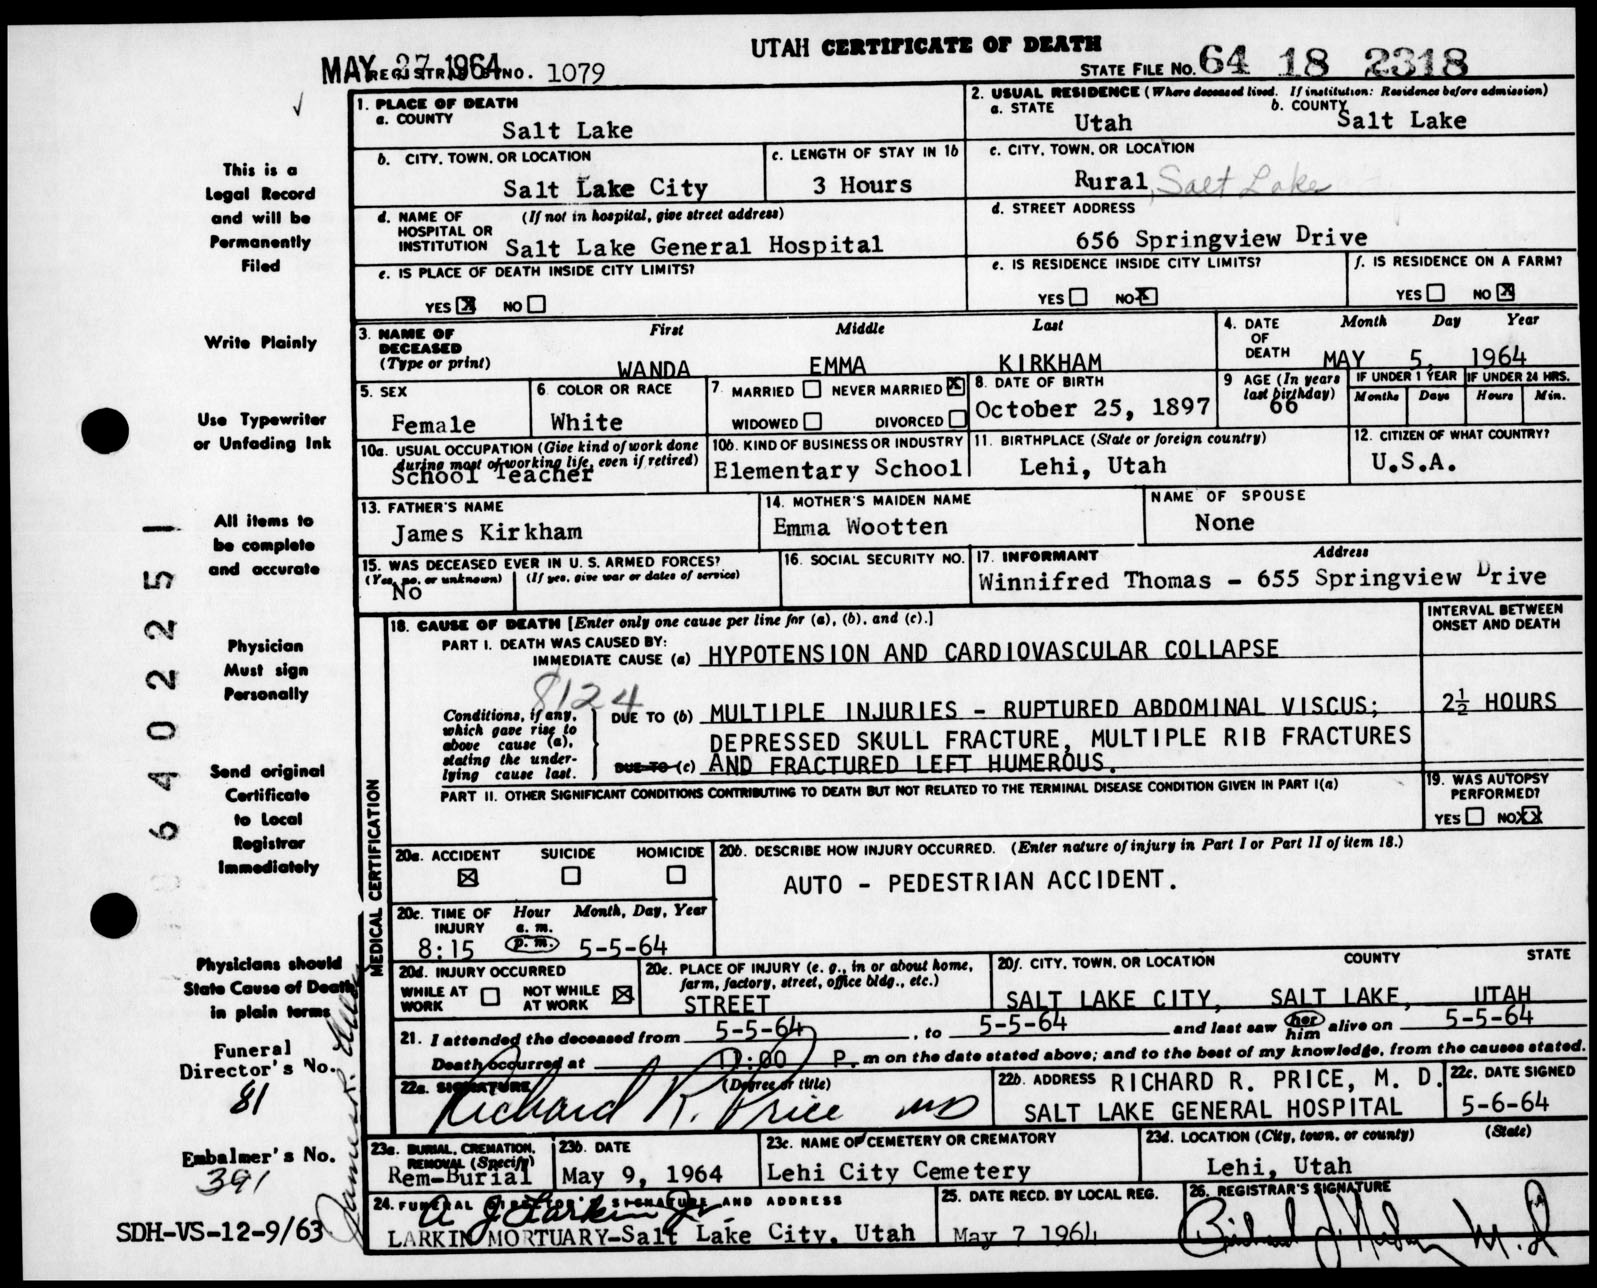 UTAH CERTIFICATE OF DEATH
MAY 27 1964
REGISTRAR'S NO. 1079
STATE FILE NO. 64 18 2318
1. PLACE OF DEATH
a. COUNTY
Salt Lake
2. USUAL RESIDENCE (Where deceased lived. If institution: Residence before admission)
a. STATE
Utah
b. COUNTY
Salt Lake
b. CITY, TOWN, OR LOCATION
Salt Lake City
c. LENGTH OF STAY IN 1b
3 Hours
c. CITY, TOWN, OR LOCATION
Rural, Salt Lake
d. NAME OF HOSPITAL OR INSTITUTION
(If not in hospital, give street address)
Salt Lake General Hospital
d. STREET ADDRESS
656 Springview Drive
e. IS PLACE OF DEATH INSIDE CITY LIMITS?
YES X NO
e. IS RESIDENCE INSIDE CITY LIMITS?
YES NO X
f. IS RESIDENCE ON A FARM?
YES NO X
3. NAME OF DECEASED
(Type or print)
First Middle Last
WANDA EMMA KIRKHAM
4. DATE OF DEATH
Month Day Year
MAY 5, 1964
5. SEX
Female
6. COLOR OR RACE
White
7. MARRIED NEVER MARRIED X
WIDOWED DIVORCED
8. DATE OF BIRTH
October 25, 1897
9 AGE (In years last birthday)
66
IF UNDER 1 YEAR
Months Days
IF UNDER 24 HRS.
Hours Min.
10a. USUAL OCCUPATION (Give kind of work done during most of working life, even if retired)
School Teacher
10b. KIND OF BUSINESS OR INDUSTRY
Elementary School
11. BIRTHPLACE (State or foreign country)
Lehi, Utah
12. CITIZEN OF WHAT COUNTRY?
U.S.A.
13. FATHER'S NAME
James Kirkham
14. MOTHER'S MAIDEN NAME
Emma Wootten
NAME OF SPOUSE
None
15. WAS DECEASED EVER IN U. S. ARMED FORCES?
(Yes, no, or unknown) (If yes, give war or dates of service)
No
16. SOCIAL SECURITY NO.
17. INFORMANT Address
Winnifred Thomas - 655 Springview Drive
MEDICAL CERTIFICATION
18. CAUSE OF DEATH [Enter only one cause per line for (a), (b), and (c).]
INTERVAL BETWEEN ONSET AND DEATH
PART I. DEATH WAS CAUSED BY:
IMMEDIATE CAUSE (a) HYPOTENSION AND CARDIOVASCULAR COLLAPSE
8124
Conditions, if any, which gave rise to above cause (a), stating the underlying cause last.
DUE TO (b) MULTIPLE INJURIES - RUPTURED ABDOMINAL VISCUS;
2½ HOURS
DEPRESSED SKULL FRACTURE, MULTIPLE RIB FRACTURES
DUE TO (c) AND FRACTURED LEFT HUMEROUS.
PART II. OTHER SIGNIFICANT CONDITIONS CONTRIBUTING TO DEATH BUT NOT RELATED TO THE TERMINAL DISEASE CONDITION GIVEN IN PART I(a)
19. WAS AUTOPSY PERFORMED?
YES NO XX
20a. ACCIDENT SUICIDE HOMICIDE
X
20b. DESCRIBE HOW INJURY OCCURRED. (Enter nature of injury in Part I or Part II of item 18.)
AUTO - PEDESTRIAN ACCIDENT.
20c. TIME OF INJURY
Hour Month, Day, Year
a. m.
8:15 p. m. 5-5-64
20d. INJURY OCCURRED
WHILE AT WORK NOT WHILE AT WORK X
20e. PLACE OF INJURY (e. g., in or about home, farm, factory, street, office bldg., etc.)
STREET
20f. CITY, TOWN, OR LOCATION COUNTY STATE
SALT LAKE CITY, SALT LAKE, UTAH
21. I attended the deceased from 5-5-64, to 5-5-64 and last saw her him alive on 5-5-64
Death occurred at 11:00 P. m on the date stated above; and to the best of my knowledge, from the causes stated.
22a. SIGNATURE (Degree or title)
Richard R. Price MD
22b. ADDRESS RICHARD R. PRICE, M. D.
SALT LAKE GENERAL HOSPITAL
22c. DATE SIGNED
5-6-64
23a. BURIAL, CREMATION, REMOVAL (Specify)
Rem-Burial
23b. DATE
May 9, 1964
23c. NAME OF CEMETERY OR CREMATORY
Lehi City Cemetery
23d. LOCATION (City, town, or county) (State)
Lehi, Utah
24. FUNERAL DIRECTOR'S SIGNATURE AND ADDRESS
A J Larkin Jr.
LARKIN MORTUARY-Salt Lake City, Utah
25. DATE RECD. BY LOCAL REG.
May 7 1964
26. REGISTRAR'S SIGNATURE
M.D
This is a
Legal Record
and will be
Permanently
Filed
Write Plainly
Use Typewriter
or Unfading Ink
All items to
be complete
and accurate
Physician
Must sign
Personally
Send original
Certificate
to Local
Registrar
Immediately
Physicians should
State Cause of Death
in plain terms
Funeral
Director's No.
81
Embalmer's No.
391
SDH-VS-12-9/63
6402251
James R.